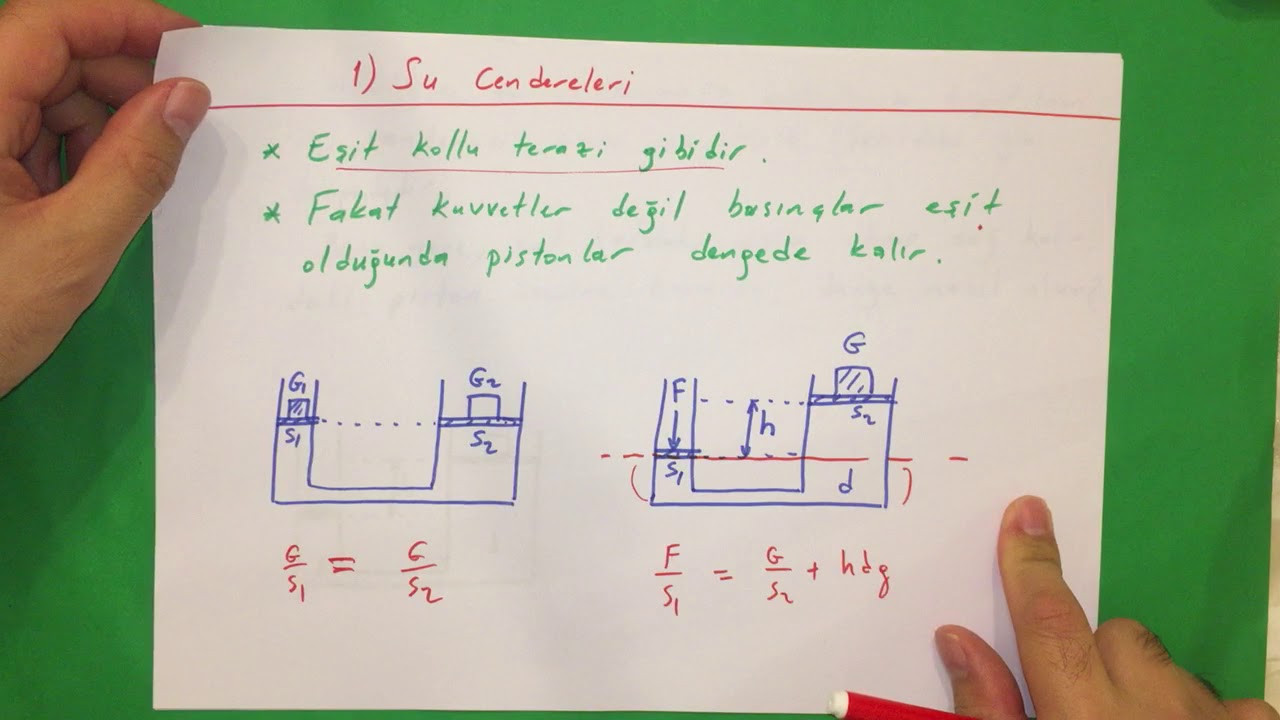 1) Su Cendereleri
* Eşit kollu terazi gibidir.
* Fakat kuvvetler değil basınçlar eşit
olduğunda pistonlar dengede kalır.
G₁
S₁
G₂
S₂
F
S₁
h
G
S₂
d
G/S₁ = G/S₂
F/S₁ = G/S₂ + hdg